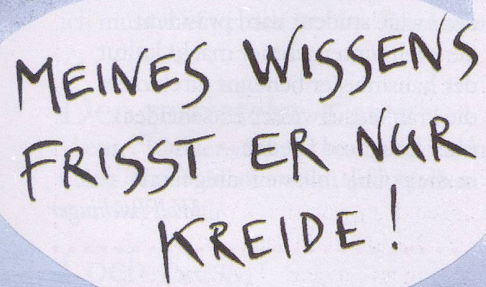 MEINES WISSENS
FRISST ER NUR
KREIDE!